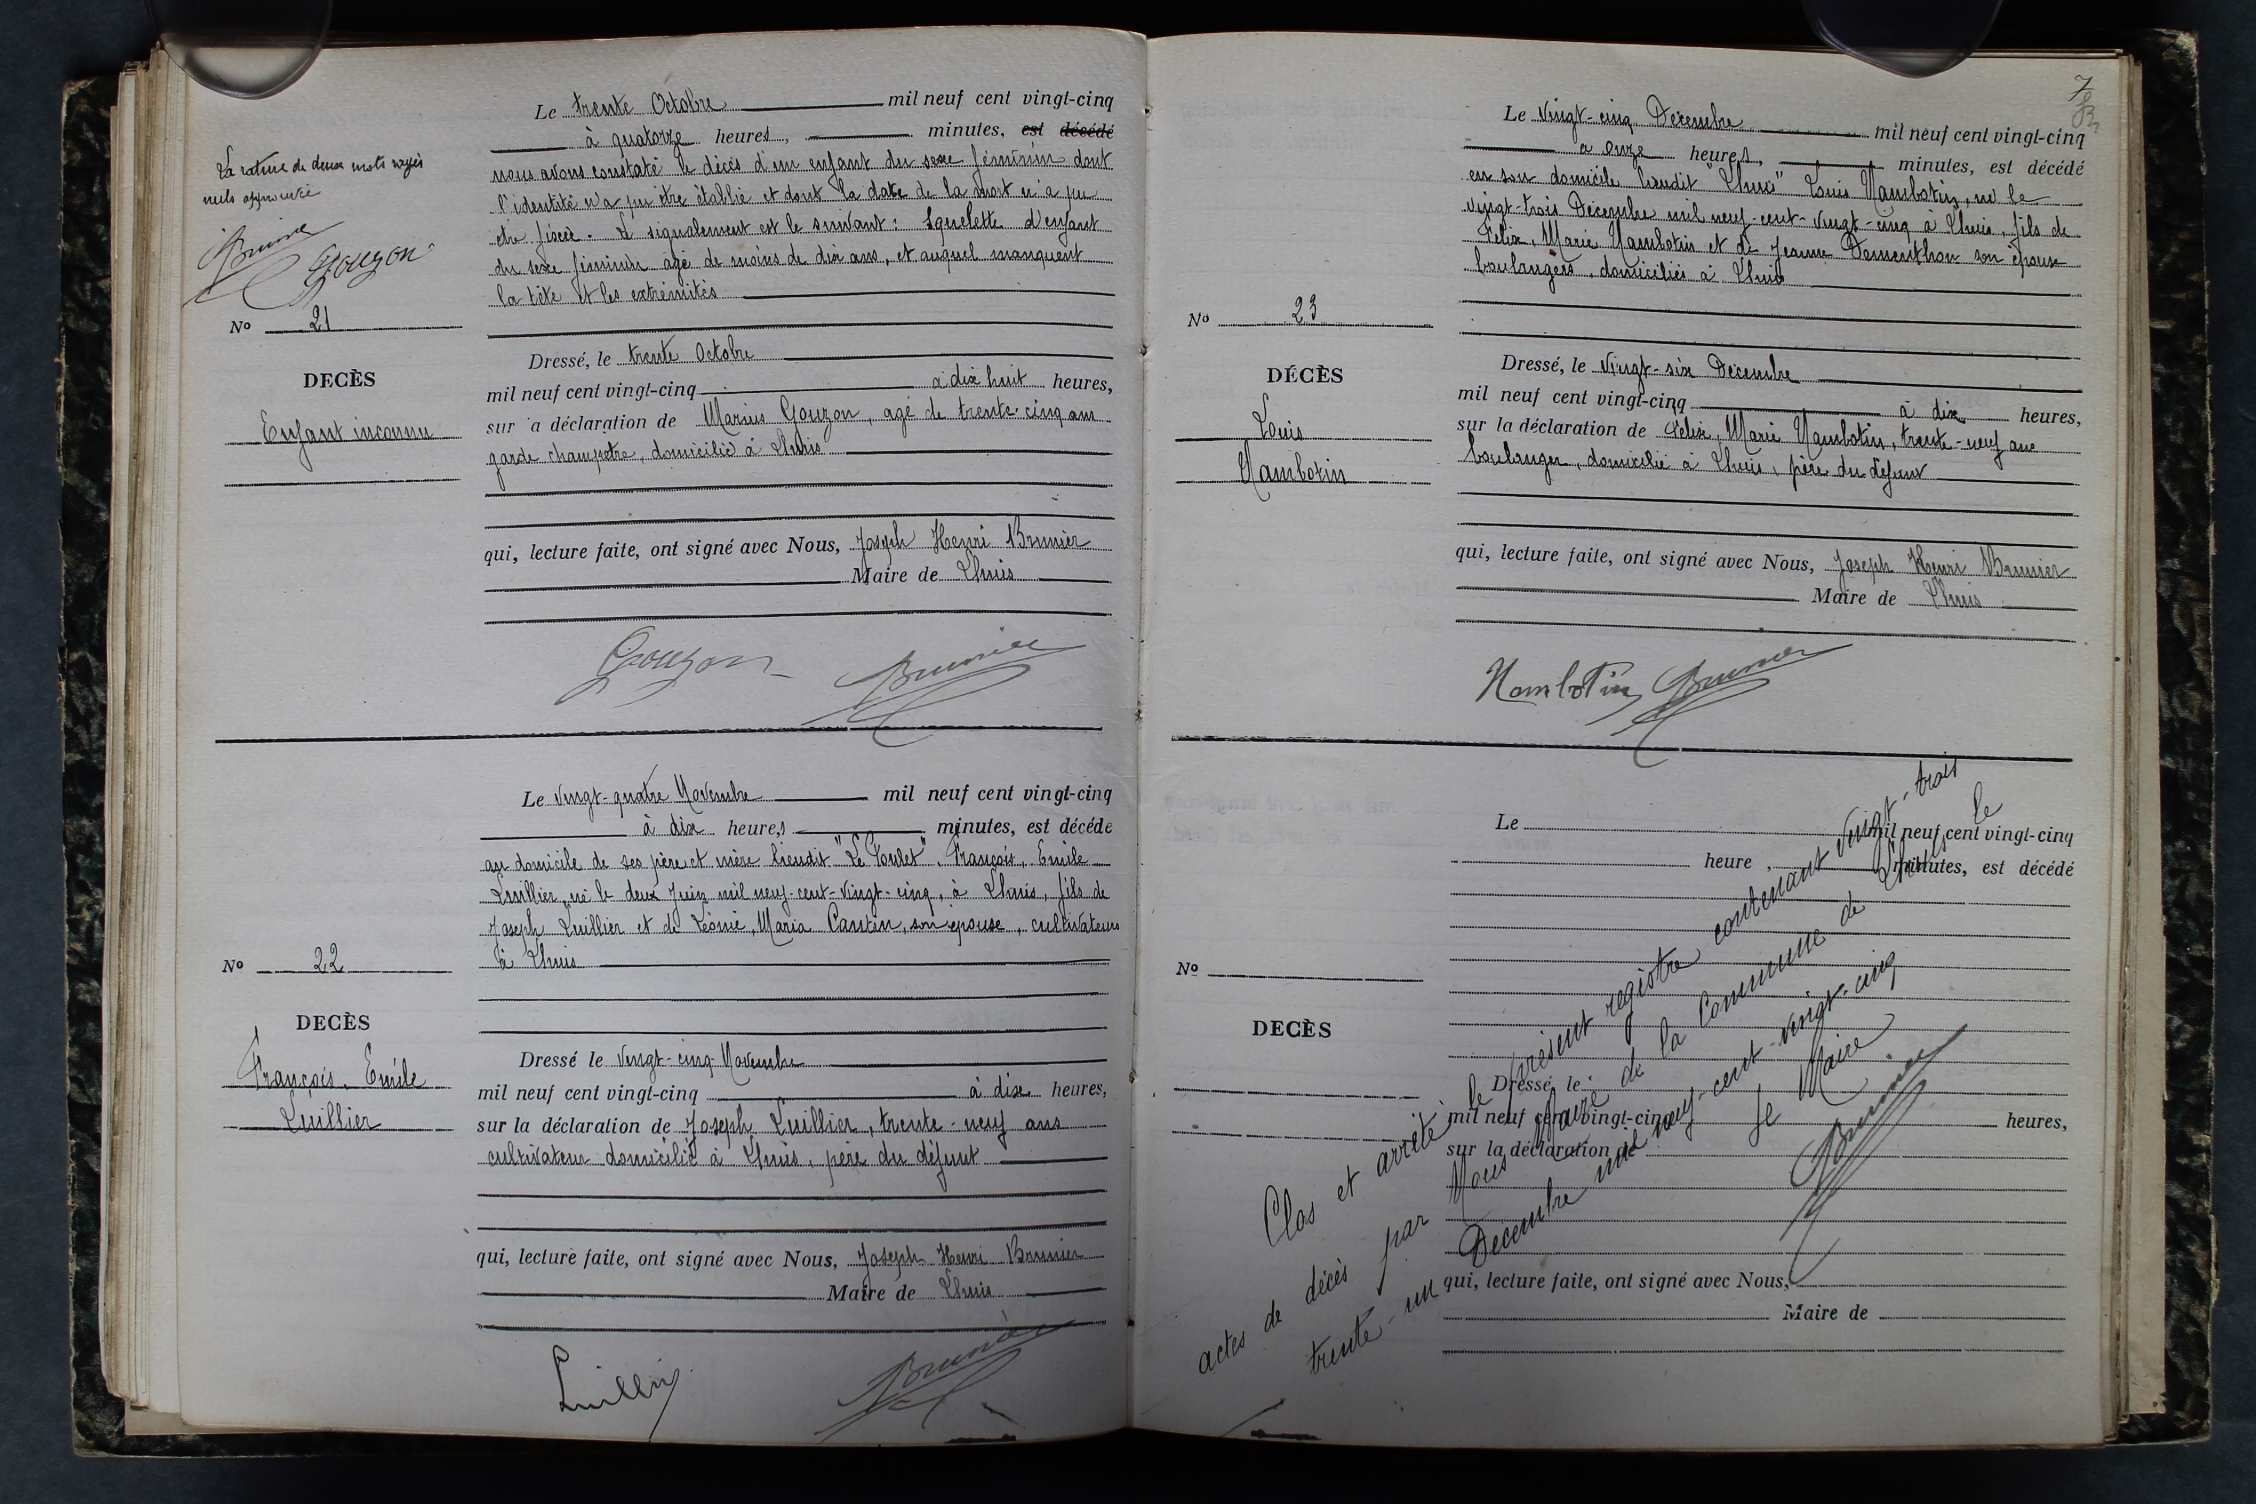 Le trente Octobre mil neuf cent vingt-cinq
à quatorze heures, minutes, est décédé
nous avons constaté le décès d'un enfant du sexe féminin dont
l'identité n'a pu être établie et dont la date de la mort n'a pu
être fixée. Le signalement est le suivant : Squelette d'enfant
du sexe féminin âgé de moins de dix ans, et auquel manquent
la tête et les extrémités
La rature de deux mots rayés
nuls approuvée
Brunier
Gouzon
No 21
DECÈS
Enfant inconnu
Dressé, le trente Octobre
mil neuf cent vingt-cinq à dix huit heures,
sur a déclaration de Marius Gouzon, agé de trente-cinq ans
garde champetre, domicilié à Lhuis
qui, lecture faite, ont signé avec Nous, Joseph Henri Brunier
Maire de Lhuis
Gouzon Brunier
Le vingt-quatre Novembre mil neuf cent vingt-cinq
à dix heures minutes, est décéde
au domicile de ses père et mère lieudit "Le Poulet", François, Emile
Luillier, né le deux Juin mil neuf-cent-vingt-cinq, à Lhuis, fils de
Joseph Luillier et de Léonie, Maria Cantin, son épouse, cultivateurs
à Lhuis
No 22
DECÈS
François, Emile
Luillier
Dressé le vingt-cinq Novembre
mil neuf cent vingt-cinq à dix heures,
sur la déclaration de Joseph Luillier, trente-neuf ans
cultivateur domicilié à Lhuis, père du défunt
qui, lecture faite, ont signé avec Nous, Joseph Henri Brunier
Maire de Lhuis
Luillier Brunier
7
Le vingt-cinq Décembre mil neuf cent vingt-cinq
à onze heures, minutes, est décédé
en son domicile lieudit "Lhuis" Louis Nambotin, né le
vingt-trois Décembre mil neuf-cent-vingt-cinq à Lhuis, fils de
Félix, Marie Nambotin et de Jeanne Dementhon son épouse
boulangers, domiciliés à Lhuis
No 23
DÉCÈS
Louis
Nambotin
Dressé, le vingt-six Décembre
mil neuf cent vingt-cinq à dix heures,
sur la déclaration de Félix, Marie Nambotin, trente-neuf ans
boulanger, domicilié à Lhuis, père du défunt
qui, lecture faite, ont signé avec Nous, Joseph Henri Brunier
Maire de Lhuis
Nambotin Brunier
Le mil neuf cent vingt-cinq
heure , minutes, est décédé
No
DECÈS
Dressé, le
mil neuf cent vingt-cinq heures,
sur la déclaration de
qui, lecture faite, ont signé avec Nous,
Maire de
Clos et arrêté le présent registre contenant vingt-trois
actes de décès par Nous Maire de la Commune de Lhuis le
trente-un Décembre mil neuf-cent-vingt-cinq
Le Maire
Brunier